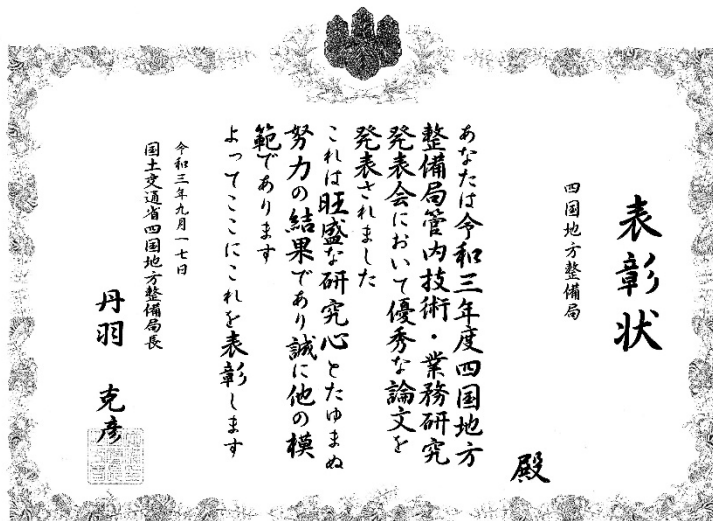 表彰状
四国地方整備局
殿
あなたは令和三年度四国地方
整備局管内技術・業務研究
発表会において優秀な論文を
発表されました
これは旺盛な研究心とたゆまぬ
努力の結果であり誠に他の模
範であります
よってここにこれを表彰します
令和三年九月一七日
国土交通省四国地方整備局長
丹羽 克彦